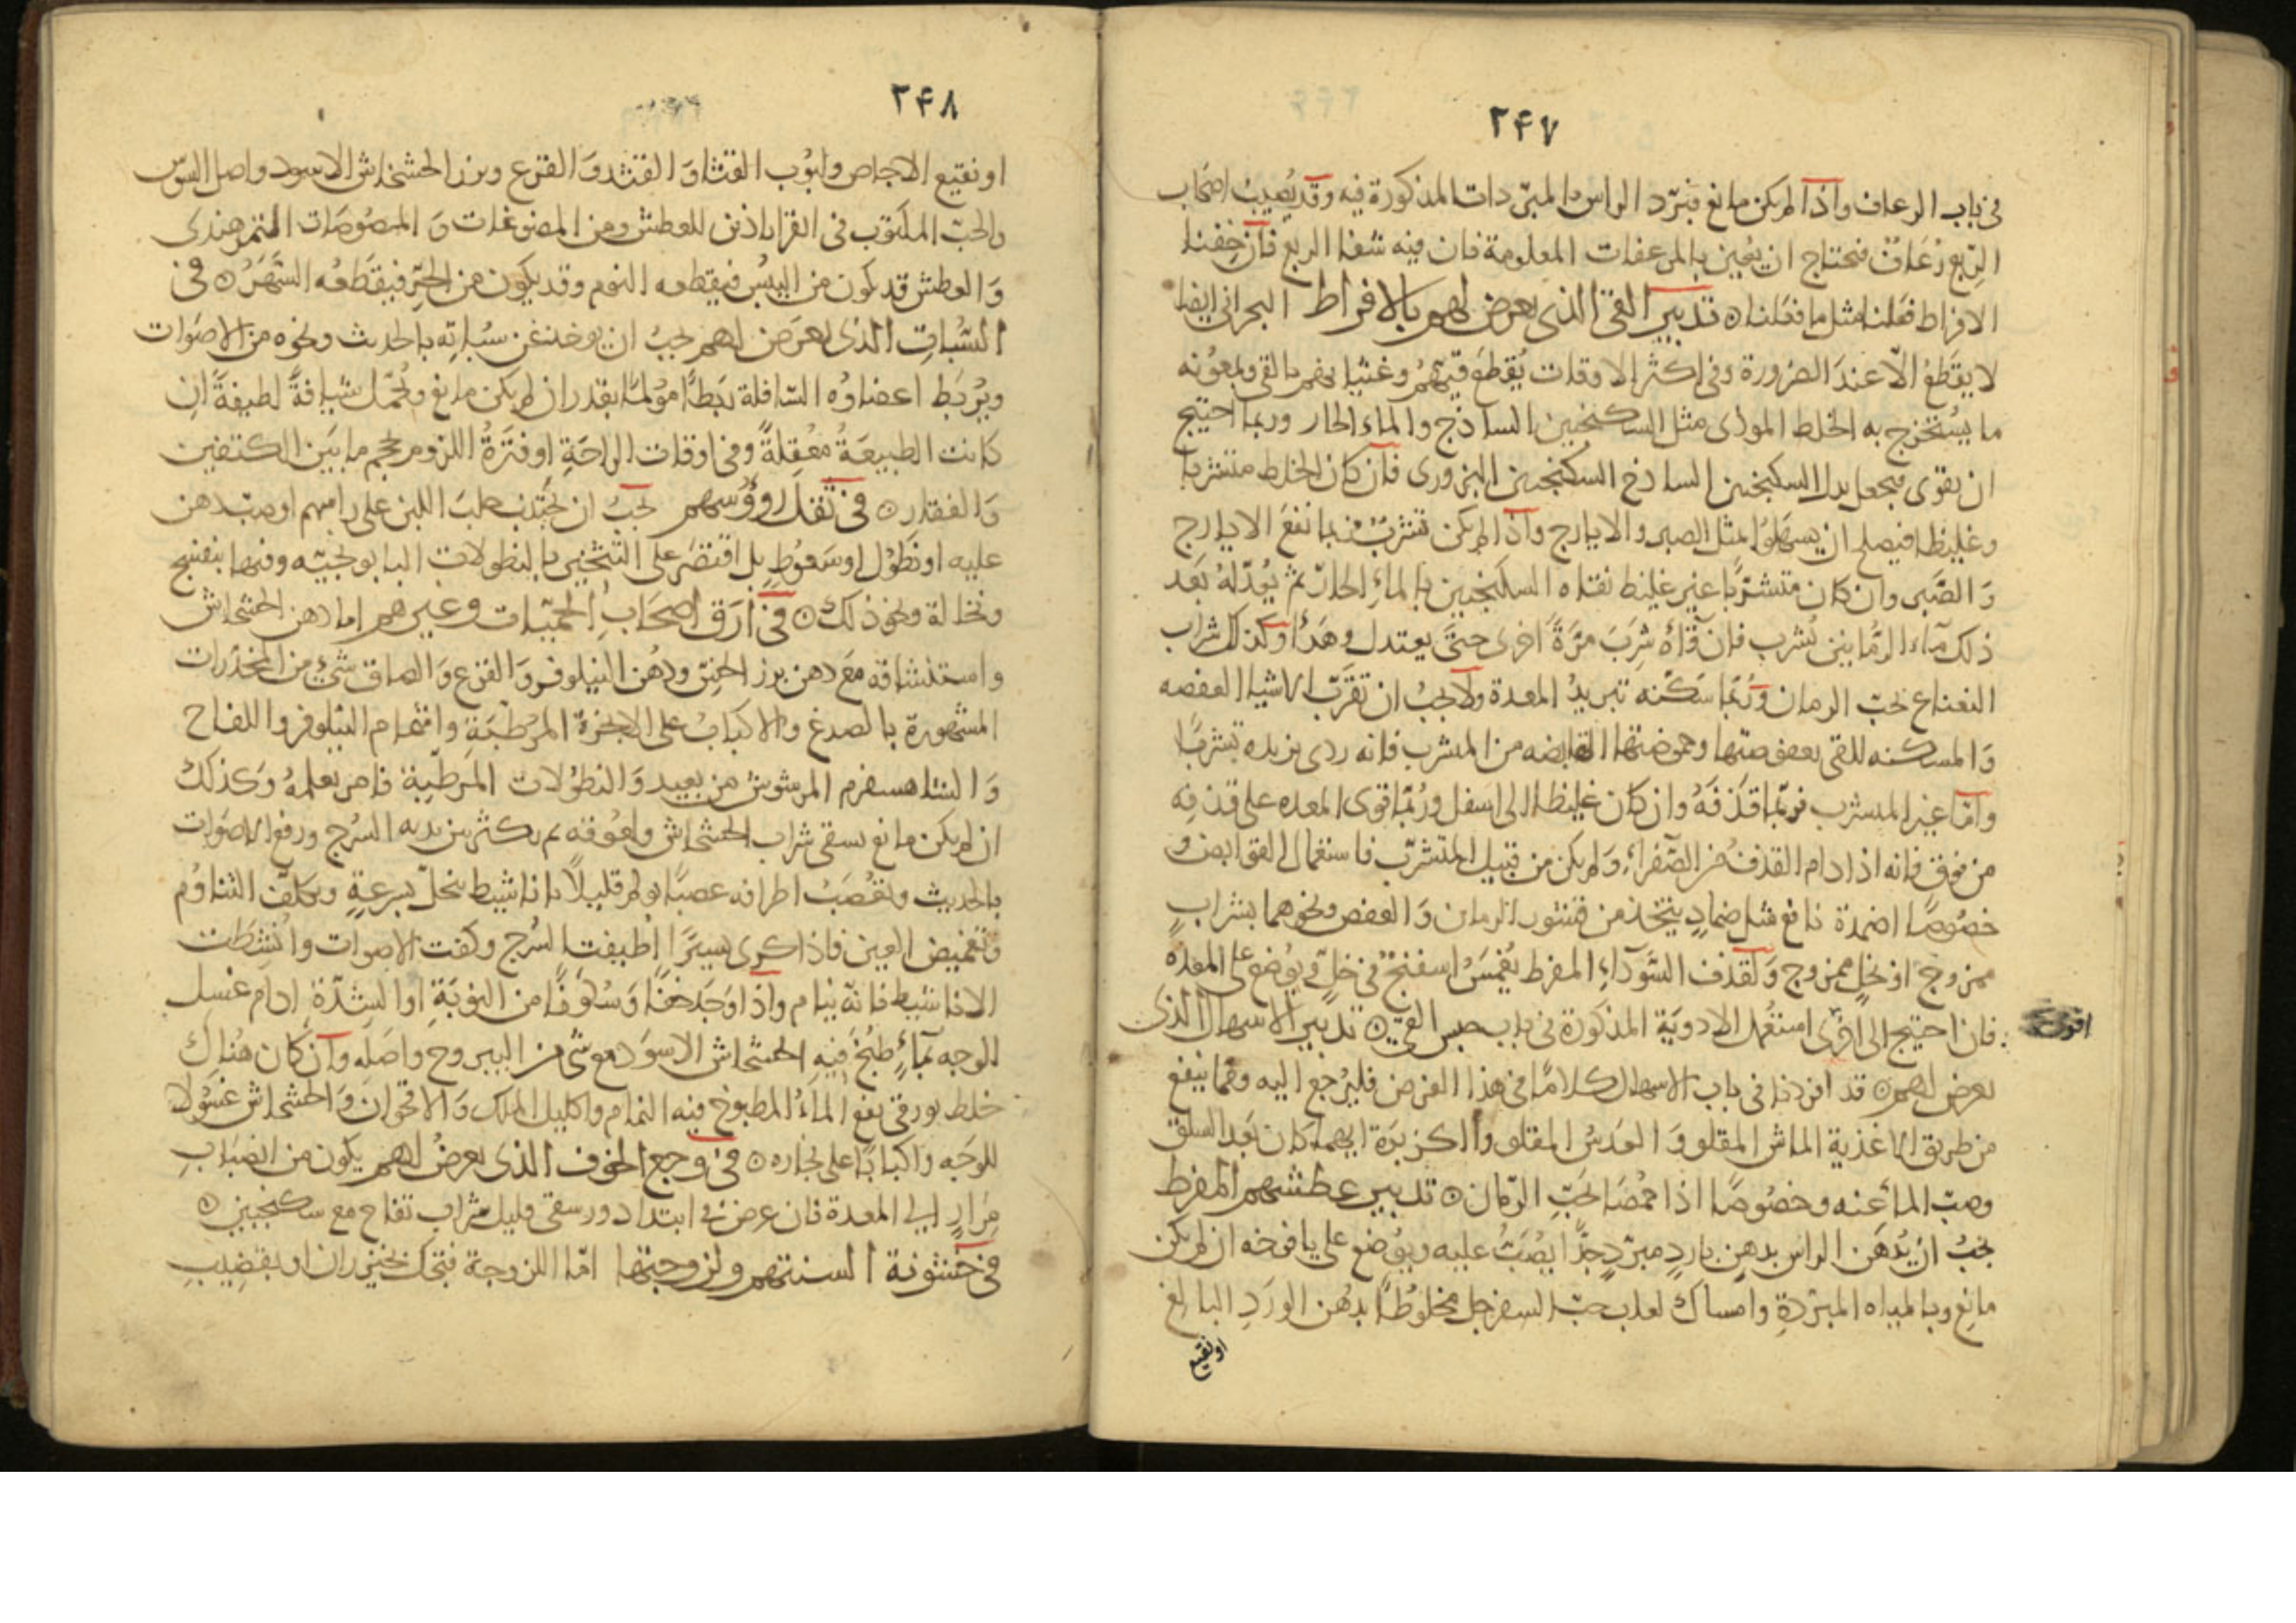 ٢۴٧
في باب الرعاف واذا لم يكن مانع فبرّد الراس بالمبرّدات المذكورة فيه وقد يُصيب اصحاب
الرّبع رُعَافٌ فتحتاج ان يُعين بالمرعفات المعلومة فان فيه شفا الربع فان خِفنا
الافراط فعلنا مثل ما فعلنا ۞ تدبير القئ الذى يعرض لهم بالافراط البحراني ايضا
لا يقطعُ الّا عندَ الضرورة وفي اكثر الاوقات يُقطع قيّهُم وغثيانهم بالقى وبمعُونه
ما يُستخرج به الخلط الموذى مثل السكنجبين الساذج والماء الحار وربما احتيج
ان يقوى فيجعل بدل السكنجبين الساذج السكنجبين البزورى فان كان الخلط متشربا
وغليظا فيصلح ان يسهلوُا بمثل الصبر والايارج واذا لم يكن تشربٌ فربما نفعَ الايارج
وَالصَّبر وان كان متشرّبا غير غليظ نقناه السكنجبين بالماءِ الحارّ ثم يُعدّلهُ بَعد
ذلك ماء الرمّانين يُشرب فان قآهُ شِربَ مرّةً اخرى حتّى يعتدل وهَدأ وكذلك شراب
النعناع بحبّ الرمان ورُبّما سَكّنه تبريدُ المعدة ولا يجبُ ان تقرَّب الاشيا العفصه
وَالمسكنه للقى بعفوصتها وحموضتها القابضه من المتشرب فانه ردى يزيده تشربًا
وامّا غير المتشرب فربّما قذفهُ وان كان غليظا الى اسفل ورُبّما قوى المعده على قذفِه
من فوق فانه اذا دام القذفُ من الصّفراءِ وَلم يكن من قبيل المتشرّب فاستعمال القوابض و
خصُوصًا اضمدة نافع مثل ضمادٍ يتخذ من قشور الرمان وَالعفص ونحوهما بشرابٍ
ممزوج او بخلٍ ممزوج وَلقذف السَّودآءِ المفرط يُغمَسُ اسفنجةٌ في خلٍّ ويوُضع على المعده
فان احتيج الى اقوى استعُمل الادويَة المذكورة في باب حبس القئ ۞ تدبير الاسهال الذى
اقوى
يعرض لهم ۞ قد افردنا في باب الاسهال كلامًا في هذا الغرض فليُرجع اليه وممّا ينفع
من طريق الاغذية الماش المقلو وَالعدسُ المقلو والكزبرَة ايهما كان بَعدَ السلق
وصبّ الماء عنه وخصُوصًا اذا حُمّضا بحَبِّ الرّمان ۞ تدبير عطشهم المفرط
يجبُ ان يُدهَن الراس بدهنٍ باردٍ مبرّدٍ جدًّا يُصَبُّ عليه ويوُضع على يافوخه ان لم يكن
مانع وبالمياه المبرّدةِ وامساك لعاب حبّ السفرجل مخلوُطًا بدُهن الورَدِ البالغ
اونقيع
٢۴٨
او نقيع الاجاص ولبُوب القثاء وَالقثد وَالقرع وبزر الخشخاش الاسود واصل السّوس
والحبّ المكتوب في القراباذين للعطش ومن المضوغات وَالمصُوصَات التمرهندى
وَالعطش قد يكون من اليبُس فيقطعه النوم وقد يكون من الحرّ فيقطعُه السَّهَرُ ۞ في
السُّباتِ الذى يعرَض لهم يجبُ ان يوخذ عن سُباتِه بالحديث ونحوه من الاصوَات
ويرُبَط اعضاوُه السّافلة رَبطًا مؤلمًا بقدر ان لم يكن مانع ويُحمّل شيافةً لطيفةً ان
كانت الطبيعَةُ معُقِلةً وفي اوقات الراحَةِ او فَترَةُ اللزوم يحجم ما بَين الكتفين
وَالفقار ۞ في ثقل رووُسهم يجبُ ان يجتنب حلبَ اللبن على راسهم او صبّ دهن
عليه او نطوُل او سَعُوطٍ بل اقتصَر على التخين بالنطولات البابونجيّه وفيها بنفسج
ونخالة ونحو ذلك ۞ في ارَق اصحَابِ الحميّات وغيرهم امادهن الخشخاش
واستنشاقه مَع دهن بزر الخسّ ودُهن النيلوفر وَالقرع وَالصاق شئ من المخدّرات
المشهورة بالصدغ والاكبابُ على الابخرة المرُطّبَةِ واشمام النيلوفر واللفاح
وَالشاهسفرم المرشوش من بعيد وَالنطوُلات المرطّبة فامر يعلمهُ وَكذلك
ان لم يكن مانع يسقى شراب الخشخاش ولعوُقه ثم يكثر بين يديه السُرج ورفع الاصوَات
بالحديث وتعُصَبُ اطرافه عصبًا يولم قليلًا بانا شيط يُحَلّ بسرعةٍ ويكلّف التناوُم
وتغميض العين فاذا كرى يسيرًا اُطفيت السُرج وكفت الاصوات واُنشطت
الاناشيط فانّه ينام واذا وَجَدَ خفّا وَسُلوفًا من النوبَةِ او الشِدّة ادام غسل
الوجه بمآءٍ طُبخَ فيه الخشخاش الاسوَد مع شئ من اليبروح واصَله وان كان هُناك
خلط بورقي نفع الماءُ المطبوخ فيه النمام واكليل الملك وَالاقحوان وَالخشخاش غسُولا
للوَجه واكبابًا على بخاره ۞ في وجع الجوف الذى يعرضُ لهم يكون من انصباب
مِرارٍ الى المعدة فان عرض في ابتداء دور سقي قليل شراب تفاح مع سكنجبين ۞
في خشونة السنتهم ولزوجتها امّا اللزوجة فتحك بخيزران او بقضِيب